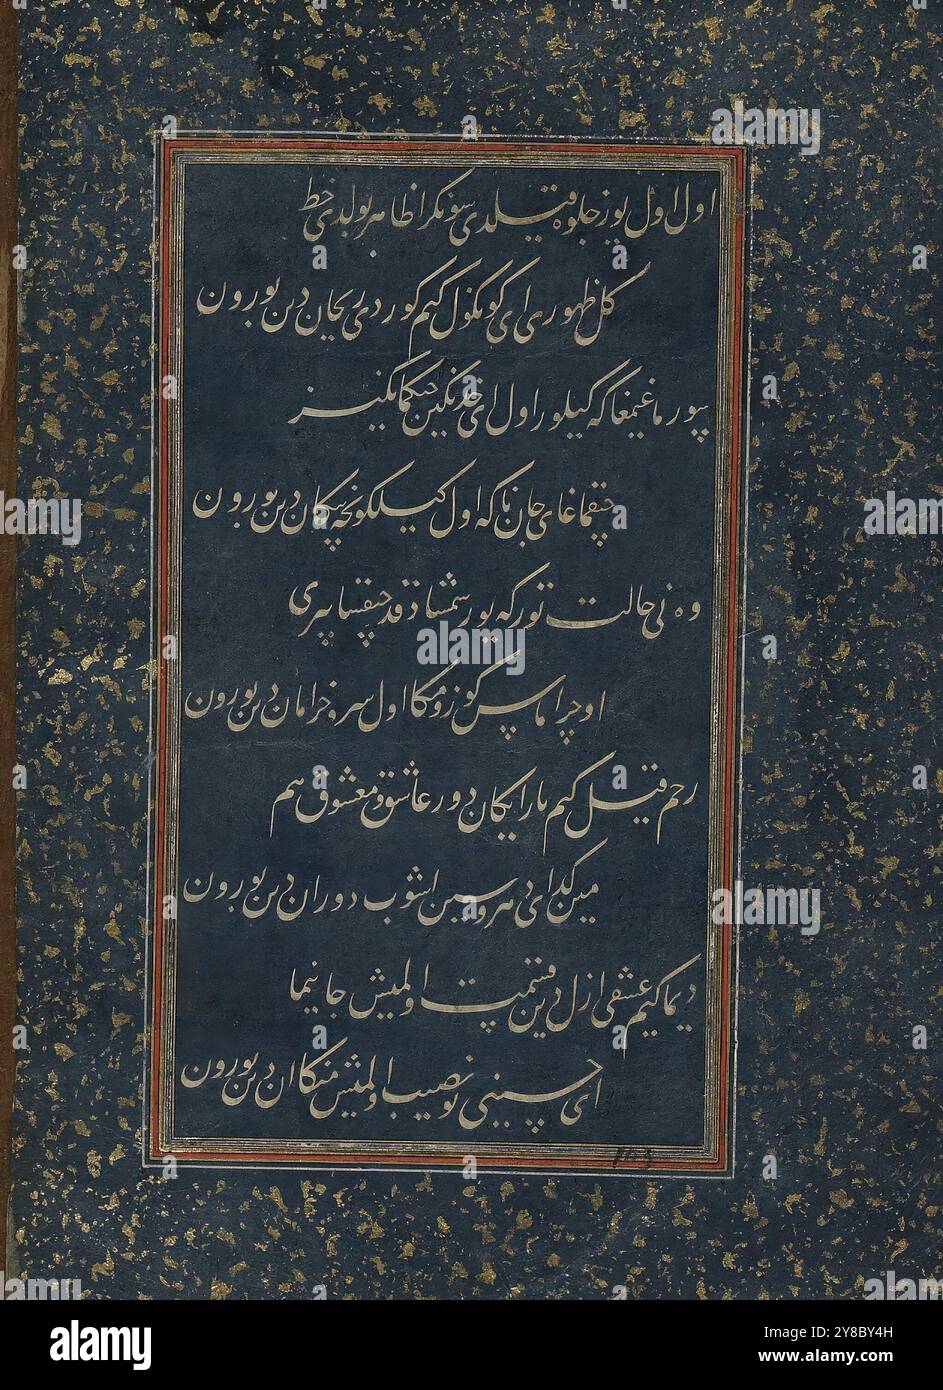 اول اول یوز جلوه قیلدی سونکرا ظاهر بولدی خط
گل ظهوری ای کونکول کیم کوردی ریحان دین بورون
پیور ماغیمغا که کیلور اول ای خدنگین چیکمانکیز
چیقماغای جان تا که اول کیلکونچه پیکان دین بورون
وه نی حالت تور که یور شمشاد قد چیقسا پری
اوچراماس کوزومکا اول سرو خرامان دین بورون
رحم قیل کیم یار ایکان دور عاشق و معشوق هم
مین گدای دهر و سین آشوب دوران دین بورون
دیماکیم عشقی ازل دین قسمت اولمیش جانیما
ای حسینی تو نصیب اولمیش منکا اندین بورون
۱۰۳
alamy
Image ID: 2Y8BY4H
www.alamy.com